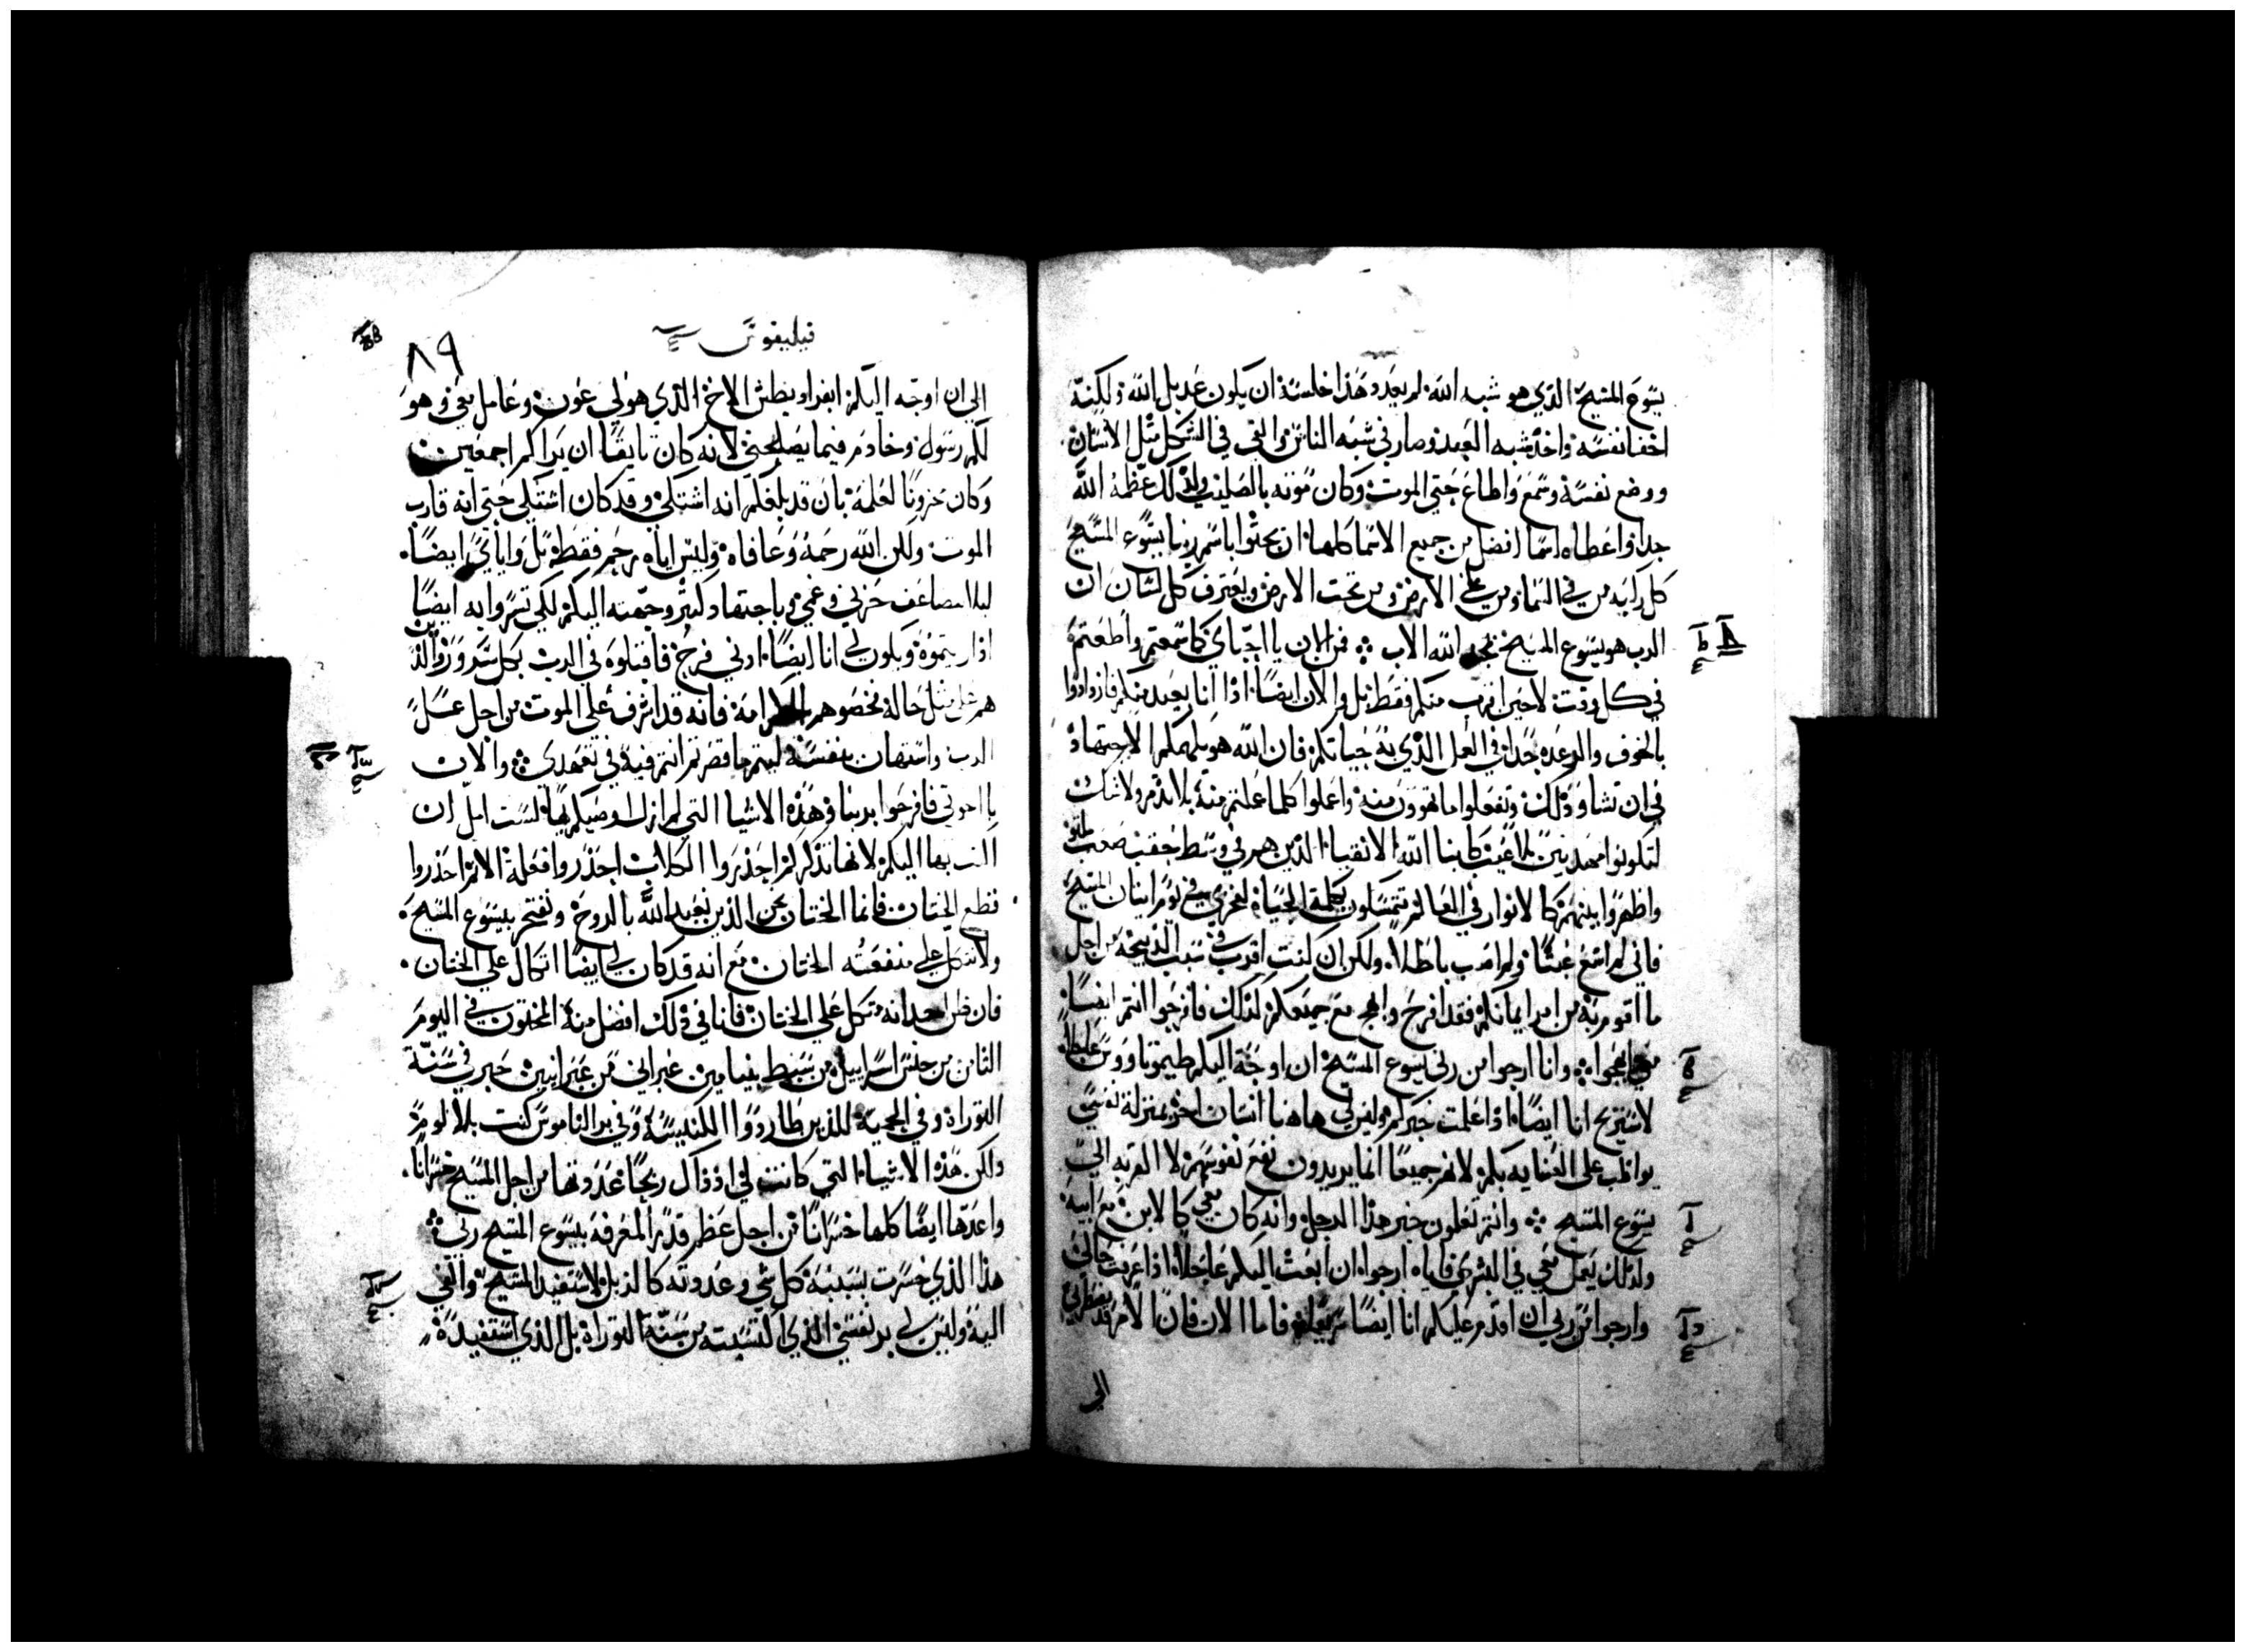 يسوع المسيح الذي هو شبه الله لم يعد وهذا خلسة ان يكون عديل الله ولكنه
اخفا نفسه واخذ شبه العبد وصار في شبه الناس والفي في الشكل مثل الانسان
ووضع نفسه وسمع واطاع حتي الموت وكان موته بالصليب ولذلك عظمه الله
جدا واعطاه اسما افضل من جميع الاسما كلها ان يجثوا باسم ربنا يسوع المسيح
كل ركبه من في السما ومن علي الارض ومن تحت الارض ويعترف كل لسان ان
الرب هو يسوع المسيح لمجد الله الاب فمن الان يا احباي كما سمعتم واطعتم
في كل وقت لا حين اقرب منكم فقط بل والان ايضا اذا انا بعيد منكم فازدادوا
بالخوف والرعده جدا في العمل الذي به حياتكم فان الله هو يلهمكم الاجتهاد
في ان تشاو ذلك وتفعلوا ما تهوون منه واعملوا كلما عملتم منه بلا تذمر ولا شك
لتكونوا مهذبين بلا عيب كابنا الله الانقيا الذين هم في وسط حقب صعب ملتو
واظهروا بينهم كالانوار في العالم متمسكون بكلمة الحياة لفخري في يوم اتيان المسيح
فاني لم اسع عبثا ولم اتعب باطلا ولكن ان كنت اقرب في سبب الذبيحة من اجل
ما اقوم به من امر ايمانكم فقد افرح وابهج مع جميعكم لذلك فافرحوا انتم ايضا
معي وابهجوا وانا ارجوا من ربي يسوع المسيح ان اوجه اليكم طيموتاووس عاجلا
لاستريح انا ايضا اذا علمت خبركم وليس لي هاهنا انسان اخر بمنزلة نفسي
يواظب علي العنايه بكم لانهم جميعا انما يريدون نفع نفوسهم لا القربه الي
يسوع المسيح وانتم تعلمون خبر هذا الرجل وانه كان معي كالابن مع ابيه
ولذلك يعمل معي في البشري فاياه ارجوا ان ابعث اليكم عاجلا اذا عرفت حالي
وارجوا من ربي ان اقدم عليكم انا ايضا سريعا فاما الان فان الامر قد يضطرني
الي
فيليفوس
٨٩
الي ان اوجه اليكم ابفراوديطس الاخ الذي هو لي عون وعامل معي وهو
لكم رسول وخادم فيما يصلحني لانه كان تايقا ان يراكم اجمعين
وكان محزونا لعلمه بان قد بلغكم انه اشتكي وقد كان اشتكي حتي انه قارب
الموت ولكن الله رحمه وعافاه وليس اياه رحم فقط بل واياي ايضا
ليلا يتضاعف حزني وغمي وباجتهاد كبير وجهته اليكم لكي تسروا به ايضا
اذا ريتموه ويكون لي انا ايضا ادني فرج فاقبلوه في الرب بكل سرور والذين
هم علي مثل حاله فخصوهم بالكرامه فانه قد اشرف علي الموت من اجل عمل
الرب واستهان بنفسه ليتم ما قصرتم انتم فيه في تعهدي والان
يا اخوتي فافرحوا بربنا وهذه الاشيا التي لم ازل اوصيكم بها لست امل ان
اكتب بها اليكم لانها تذكركم احذروا الكلاب احذروا فعلة الاثم احذروا
قطع الختان فانما الختان نحن الذين نعبد الله بالروح ونفتخر بيسوع المسيح
ولا نتكل علي منفعته الختان مع انه قد كان لي ايضا اتكال علي الختان
فان ظن احد انه متكل علي الختان فانا في ذلك افضل منه المختون في اليوم
الثامن من جنس اسراييل من سبط بنيامين عبراني من عبرانيين حبر في سنة
التوراة وفي الحمية للدين طاردوا الكنيسة وفي بر الناموس كنت بلا لوم
ولكن هذه الاشيا التي كانت لي اذ ذاك ربحا عددتها من اجل المسيح خسرانا
واعدها ايضا كلها خسرانا من اجل عظم قدر المعرفة بيسوع المسيح ربي
هذا الذي خسرت بسببه كل شي وعددته كالزبل لاستفيد المسيح والفي
اليه وليس لي بر نفسي الذي اكتسبته من سنة التوراة بل الذي استفيده